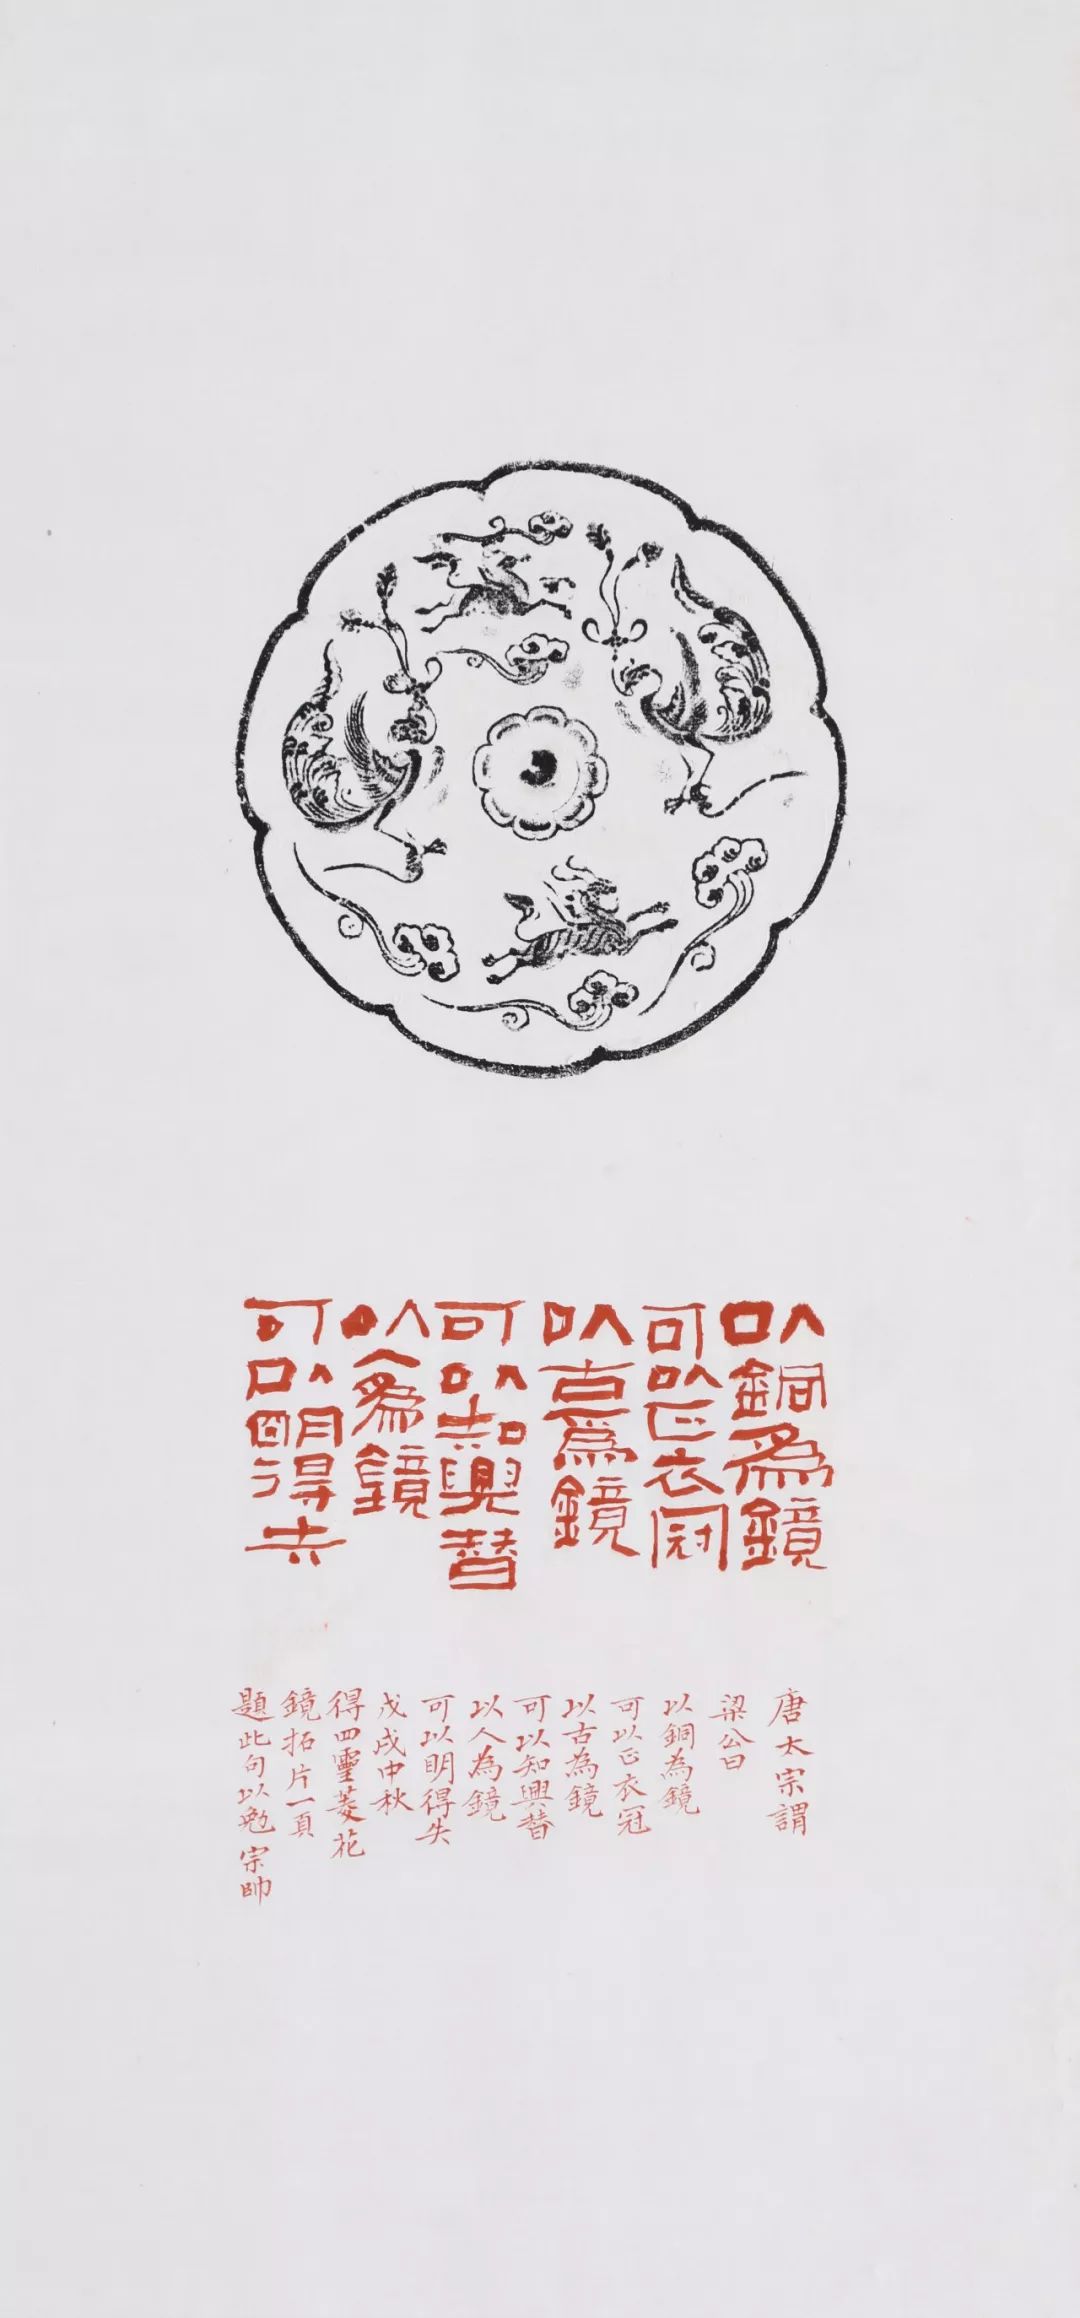 以銅為鏡
可以正衣冠
以古為鏡
可以知興替
以人為鏡
可以明得失
唐太宗謂
梁公曰
以銅為鏡
可以正衣冠
以古為鏡
可以知興替
以人為鏡
可以明得失
戊戌中秋
得四靈菱花
鏡拓片一頁
題此句以勉 宗帥